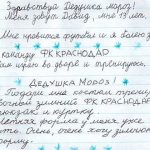 Здравствуй Дедушка мороз!
Меня зовут Давид, мне 13 лет.
Мне нравится футбол и я болею за
команду ФК КРАСНОДАР
играю во дворе и тренируюсь.
ДЕДУШКА МОРОЗ!
Подари мне костюм трениро
зимний ФК КРАСНОДАР
и куртку.
форма у меня уже
есть. Очень, очень хочу зимнюю
форму.